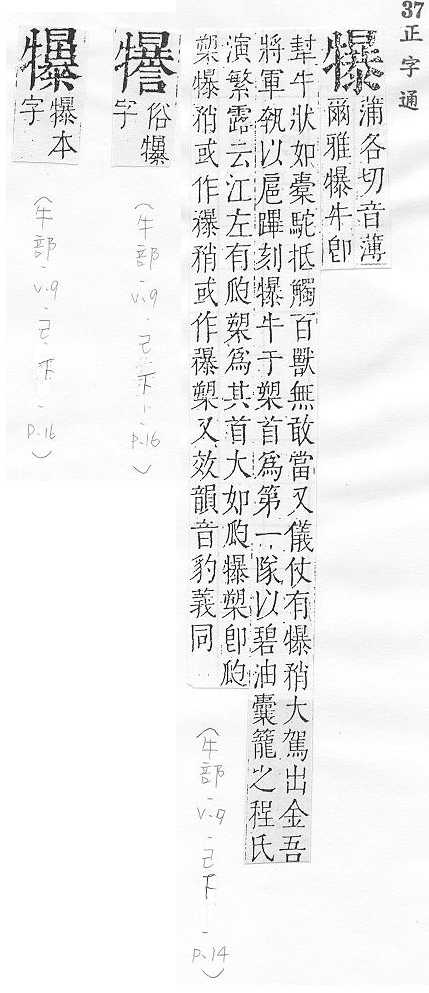 37 正字通
犦
蒲各切音薄
爾雅犦牛卽
犎牛狀如橐駝抵觸百獸無敢當又儀仗有犦矟大駕出金吾
將軍執以扈蹕刻犦牛于槊首爲第一隊以碧油囊籠之程氏
演繁露云江左有瓟槊爲其首大如瓟犦槊卽瓟
槊犦矟或作襮矟或作襮槊又效韻音豹義同
(牛部、v.9、己下、p.14)
俗犦
字
(牛部、v.9、己下、p.16)
犦本
字
(牛部、v.9、己下、p.16)